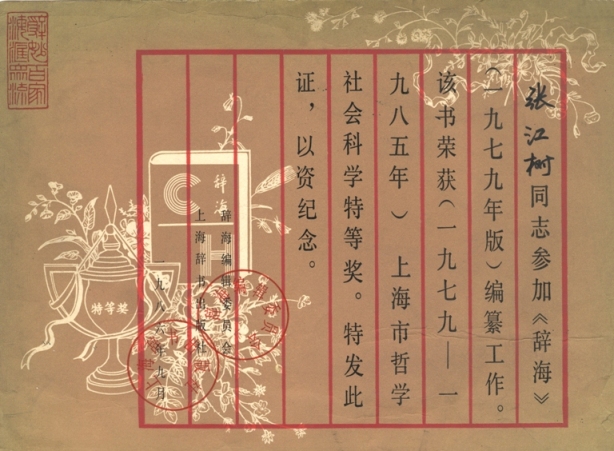 张江树同志参加《辞海》
(一九七九年版)编纂工作。
该书荣获(一九七九——一
九八五年) 上海市哲学
社会科学特等奖。特发此
证，以资纪念。
辞海
辞海编辑委员会
上海辞书出版社
一九八六年九月
特等奖